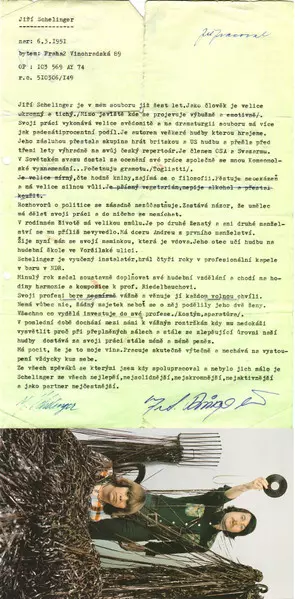 Jiří Schelinger
nar: 6.3.1951
bytem: Praha2 Vinohradská 69
OP : 103 569 AT 74
r.č. 510306/149
Jiří Schelinger je v mém souboru již šest let.Jako člověk je velice
ukromný a tichý./Mimo jeviště kde se projevuje výbušně a emotivně/.
Svoji práci vykonává velice svědomitě a na dramaturgii souboru má více
jak padesátiprocentní podíl.Je autorem veškeré hudby kterou hrajeme.
Jeho zásluhou přestala skupina hrát britskou a US hudbu a přešla před
třemi lety výhradně na svůj český repertoár.Je členem OSA i Svazarmu.
V Sovětském svazu dostal za ocenění své práce společně se mnou Komsomol-
ské vyznamenání...Počtenují gramotu./Togliatti/.
Je velice mírný,čte hodně knihy,zajímá se o filosofii.Pěstuje nečekaněn
a má velice silnou vůli.Je přísný vegetarián,nepije alkohol a přestal
kouřit.
Rozhovorů o politice se zásadně nezúčastňuje.Zastává názor, že umělec
má dělat svoji práci a do ničeho se nemíchat.
V rodinném životě má velikou smůlu.Je po druhé ženatý a ani druhé manžel-
ství se mu příliš nevyvedlo.Má dceru Andreu z prvního manželství.
Žije nyní sám se svojí maminkou, která je vdova.Jeho otec učil hudbu na
hudební škole ve Voršilské ulici.
Schelinger je vyučený instalatér,hrál čtyři roky v profesionální kapele
v baru v NDR.
Minulý rok začal soustavně doplňovat své hudební vzdělání a chodí na ho-
diny harmonie a kompozice k prof. Riedelbauchovi.
Svoji profesi bere nesmírně vážně a věnuje jí každou volnou chvíli.
Nemá vůbec nic, žádný majetek neboť se o něj podělily jeho dvě ženy.
Všechno co vydělá investuje do své profese./Kostýmy,aparatura/.
V poslední době dochází mezi námi k vážným roztržkám kdy mu nedokáži
vysvětlit proč při přeplněných sálech a stále se zlepšující úrovni naší
hudby dostává se svojí práci stále méně a méně peněz.
Má pocit, že je to moje vina.Pracuje skutečně výtečně a nechává na vystou-
pení vždycky kus sebe.
Ze všech zpěváků se kterými jsem kdy spolupracoval a nebylo jich málo je
Schelinger ze všech nejlepší,nejsolidnější,nejskromnější,nejaktivnější
a jako partner nejčestnější.